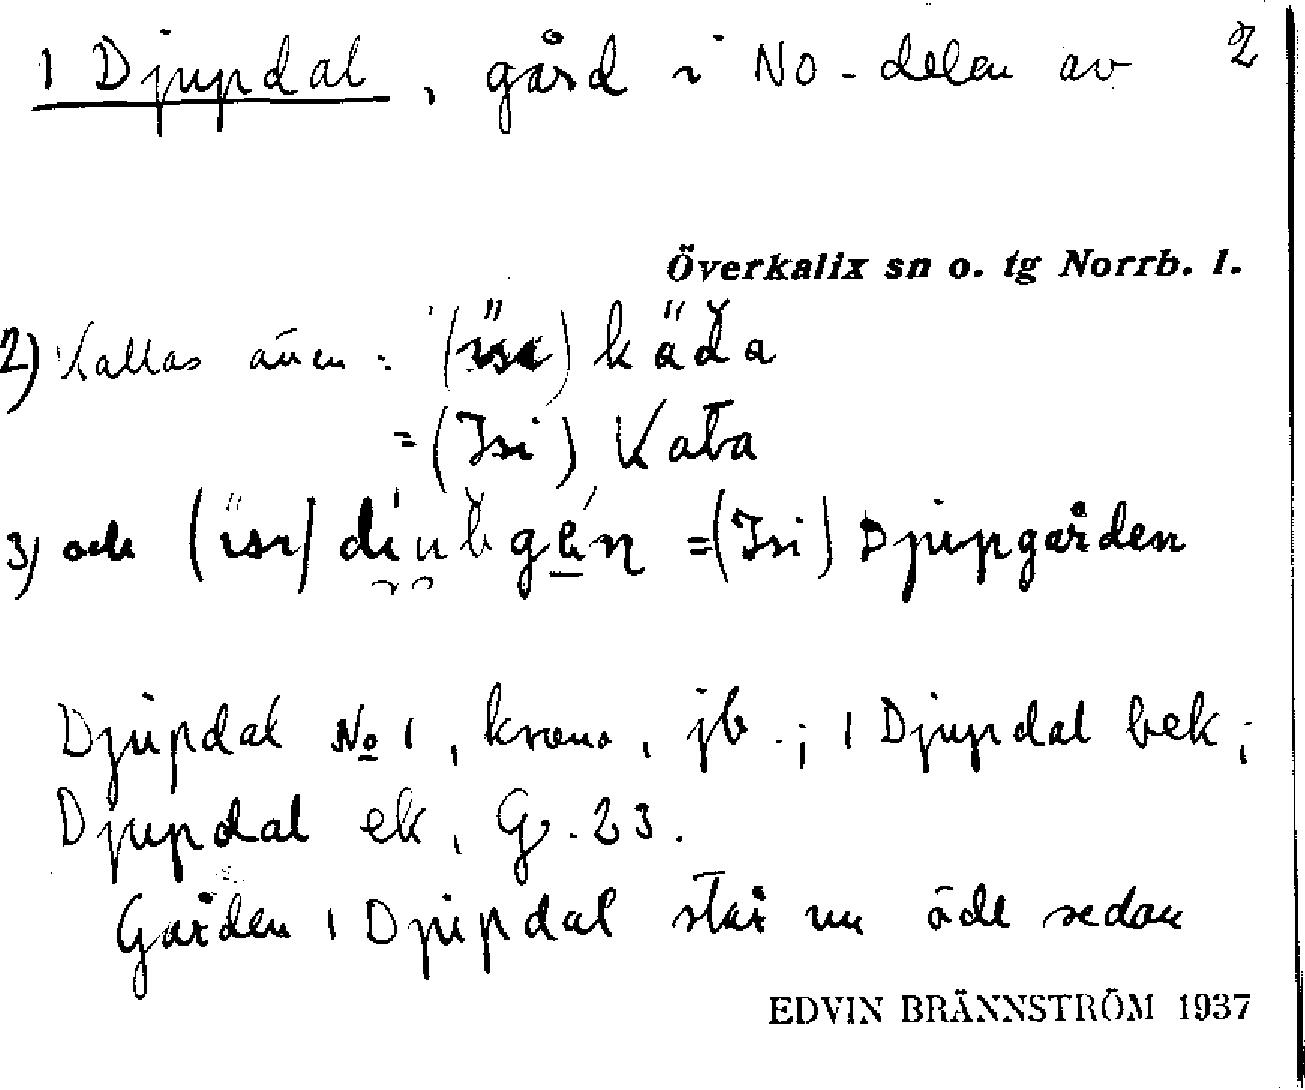 1 Djupdal, gård i NO-delen av 2
Överkalix sn o. tg Norrb. l.
2) Kallas även: (ïsɩ) käďa
=(Isi) Kata
3) och (ïsɩ) di̯u̯bgɑ̈́n =(Isi) Djupgården
Djupdal No 1, krono, jb.; 1 Djupdal bek;
Djupdal ek, G. 23.
Gården 1 Djupdal står nu öde sedan
EDVIN BRÄNNSTRÖM 1937